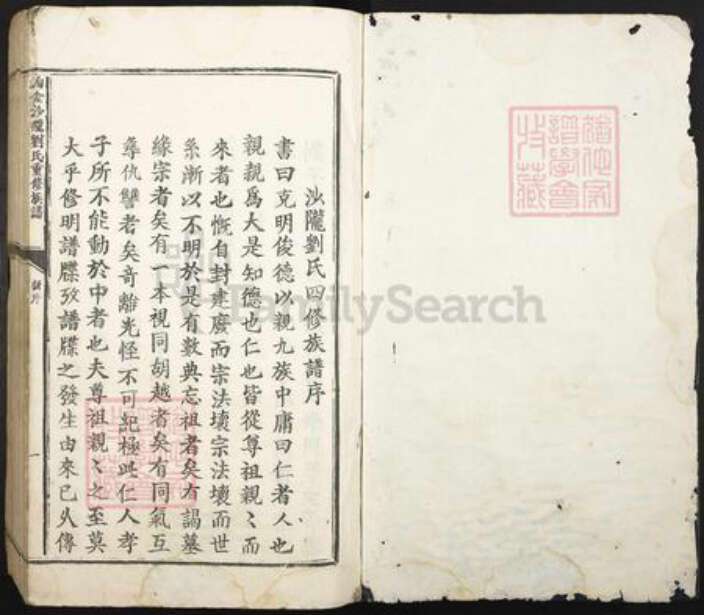 沙隴劉氏四修族譜序
書曰克明俊德以親九族中庸曰仁者人也
親親爲大是知德也仁也皆從尊祖親〻而
來者也慨自封建廢而宗法壞宗法壞而世
系漸以不明於是有數典忘祖者矣有謁墓
緣宗者矣有一本視同胡越者矣有同氣互
尋仇讐者矣奇離光怪不可紀極此仁人孝
子所不能動於中者也夫尊祖親〻之至莫
大乎修明譜牒攷譜牒之發生由來已久傳
沙隴劉氏重修族譜
FamilySearch